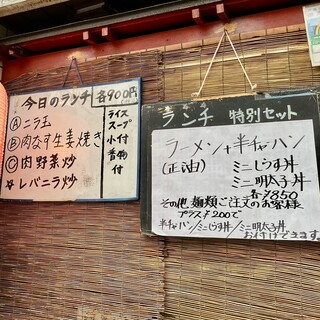 今日のランチ 各900円
Ⓐ ニラ玉
Ⓑ 肉なす生姜焼き
Ⓒ 肉野菜炒
☆ レバニラ炒
ライス
スープ
小付
香物
付
ランチ 特別セット
ラーメン+半チャーハン
(正油) ミニしらす丼
ミニ明太子丼
各¥850
その他麺類ご注文のお客様
プラス¥200で
半チャーハン/ミニしらす丼/ミニ明太子丼
お付けできます